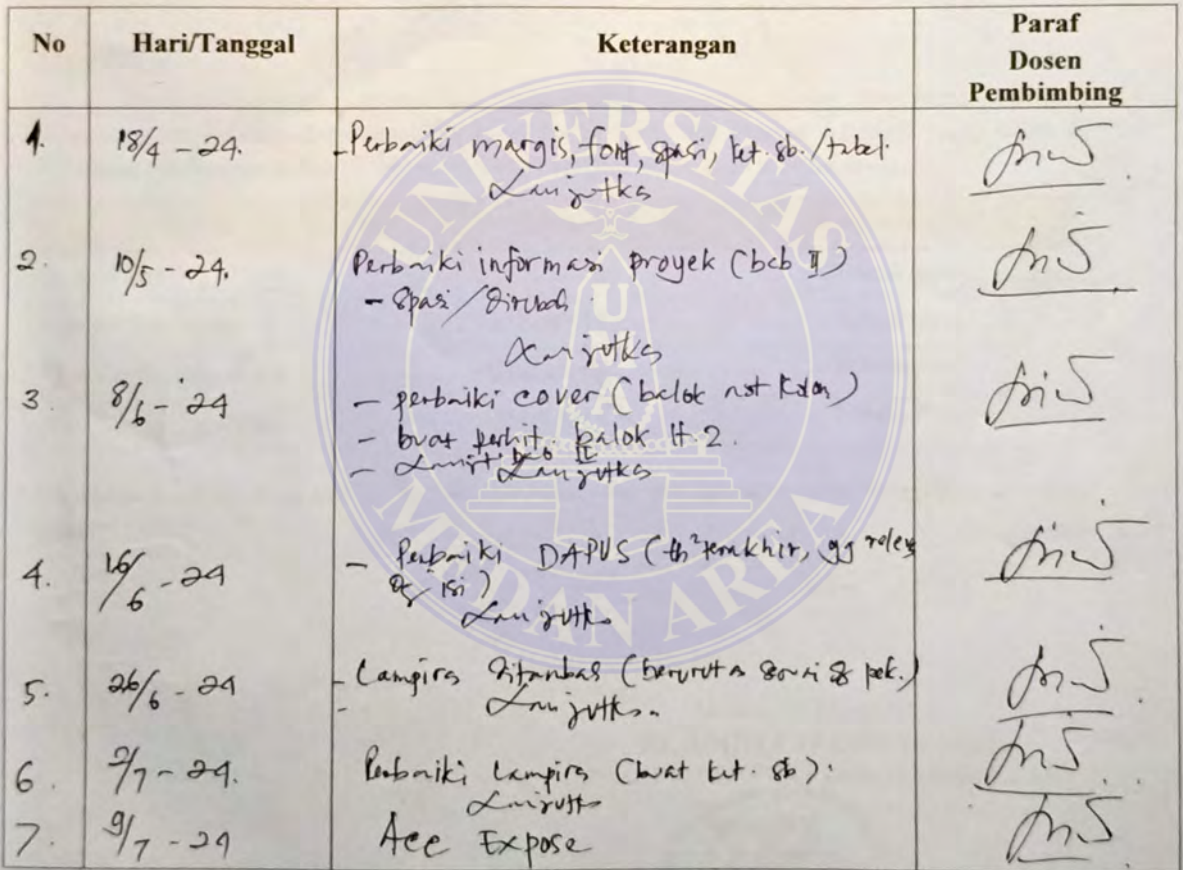 No Hari/Tanggal Keterangan Paraf Dosen Pembimbing
1. 18/4 - 24. - Perbaiki margis, font, spasi, ket. gb. / tabel.
Lanjutks
2. 10/5 - 24. Perbaiki informasi proyek (bab II)
- spasi / dirubah.
Lanjutks
3 8/6 - 24 - perbaiki cover (balok not kolom)
- buat perhit. balok lt. 2.
- Lanjt. bab II
Lanjutks
4. 16/6 - 24 - Perbaiki DAPUS (th² terakhir, yg relev
dg isi)
Lanjutks
5. 26/6 - 24 - Lampiran ditambas (berurutan sesuai dg pek.)
Lanjutks.
6. 2/7 - 24. Perbaiki Lampiran (buat ket. gb).
Lanjutks
7. 9/7 - 24 Acc Expose
UNIVERSITAS
UMA
MEDAN AREA